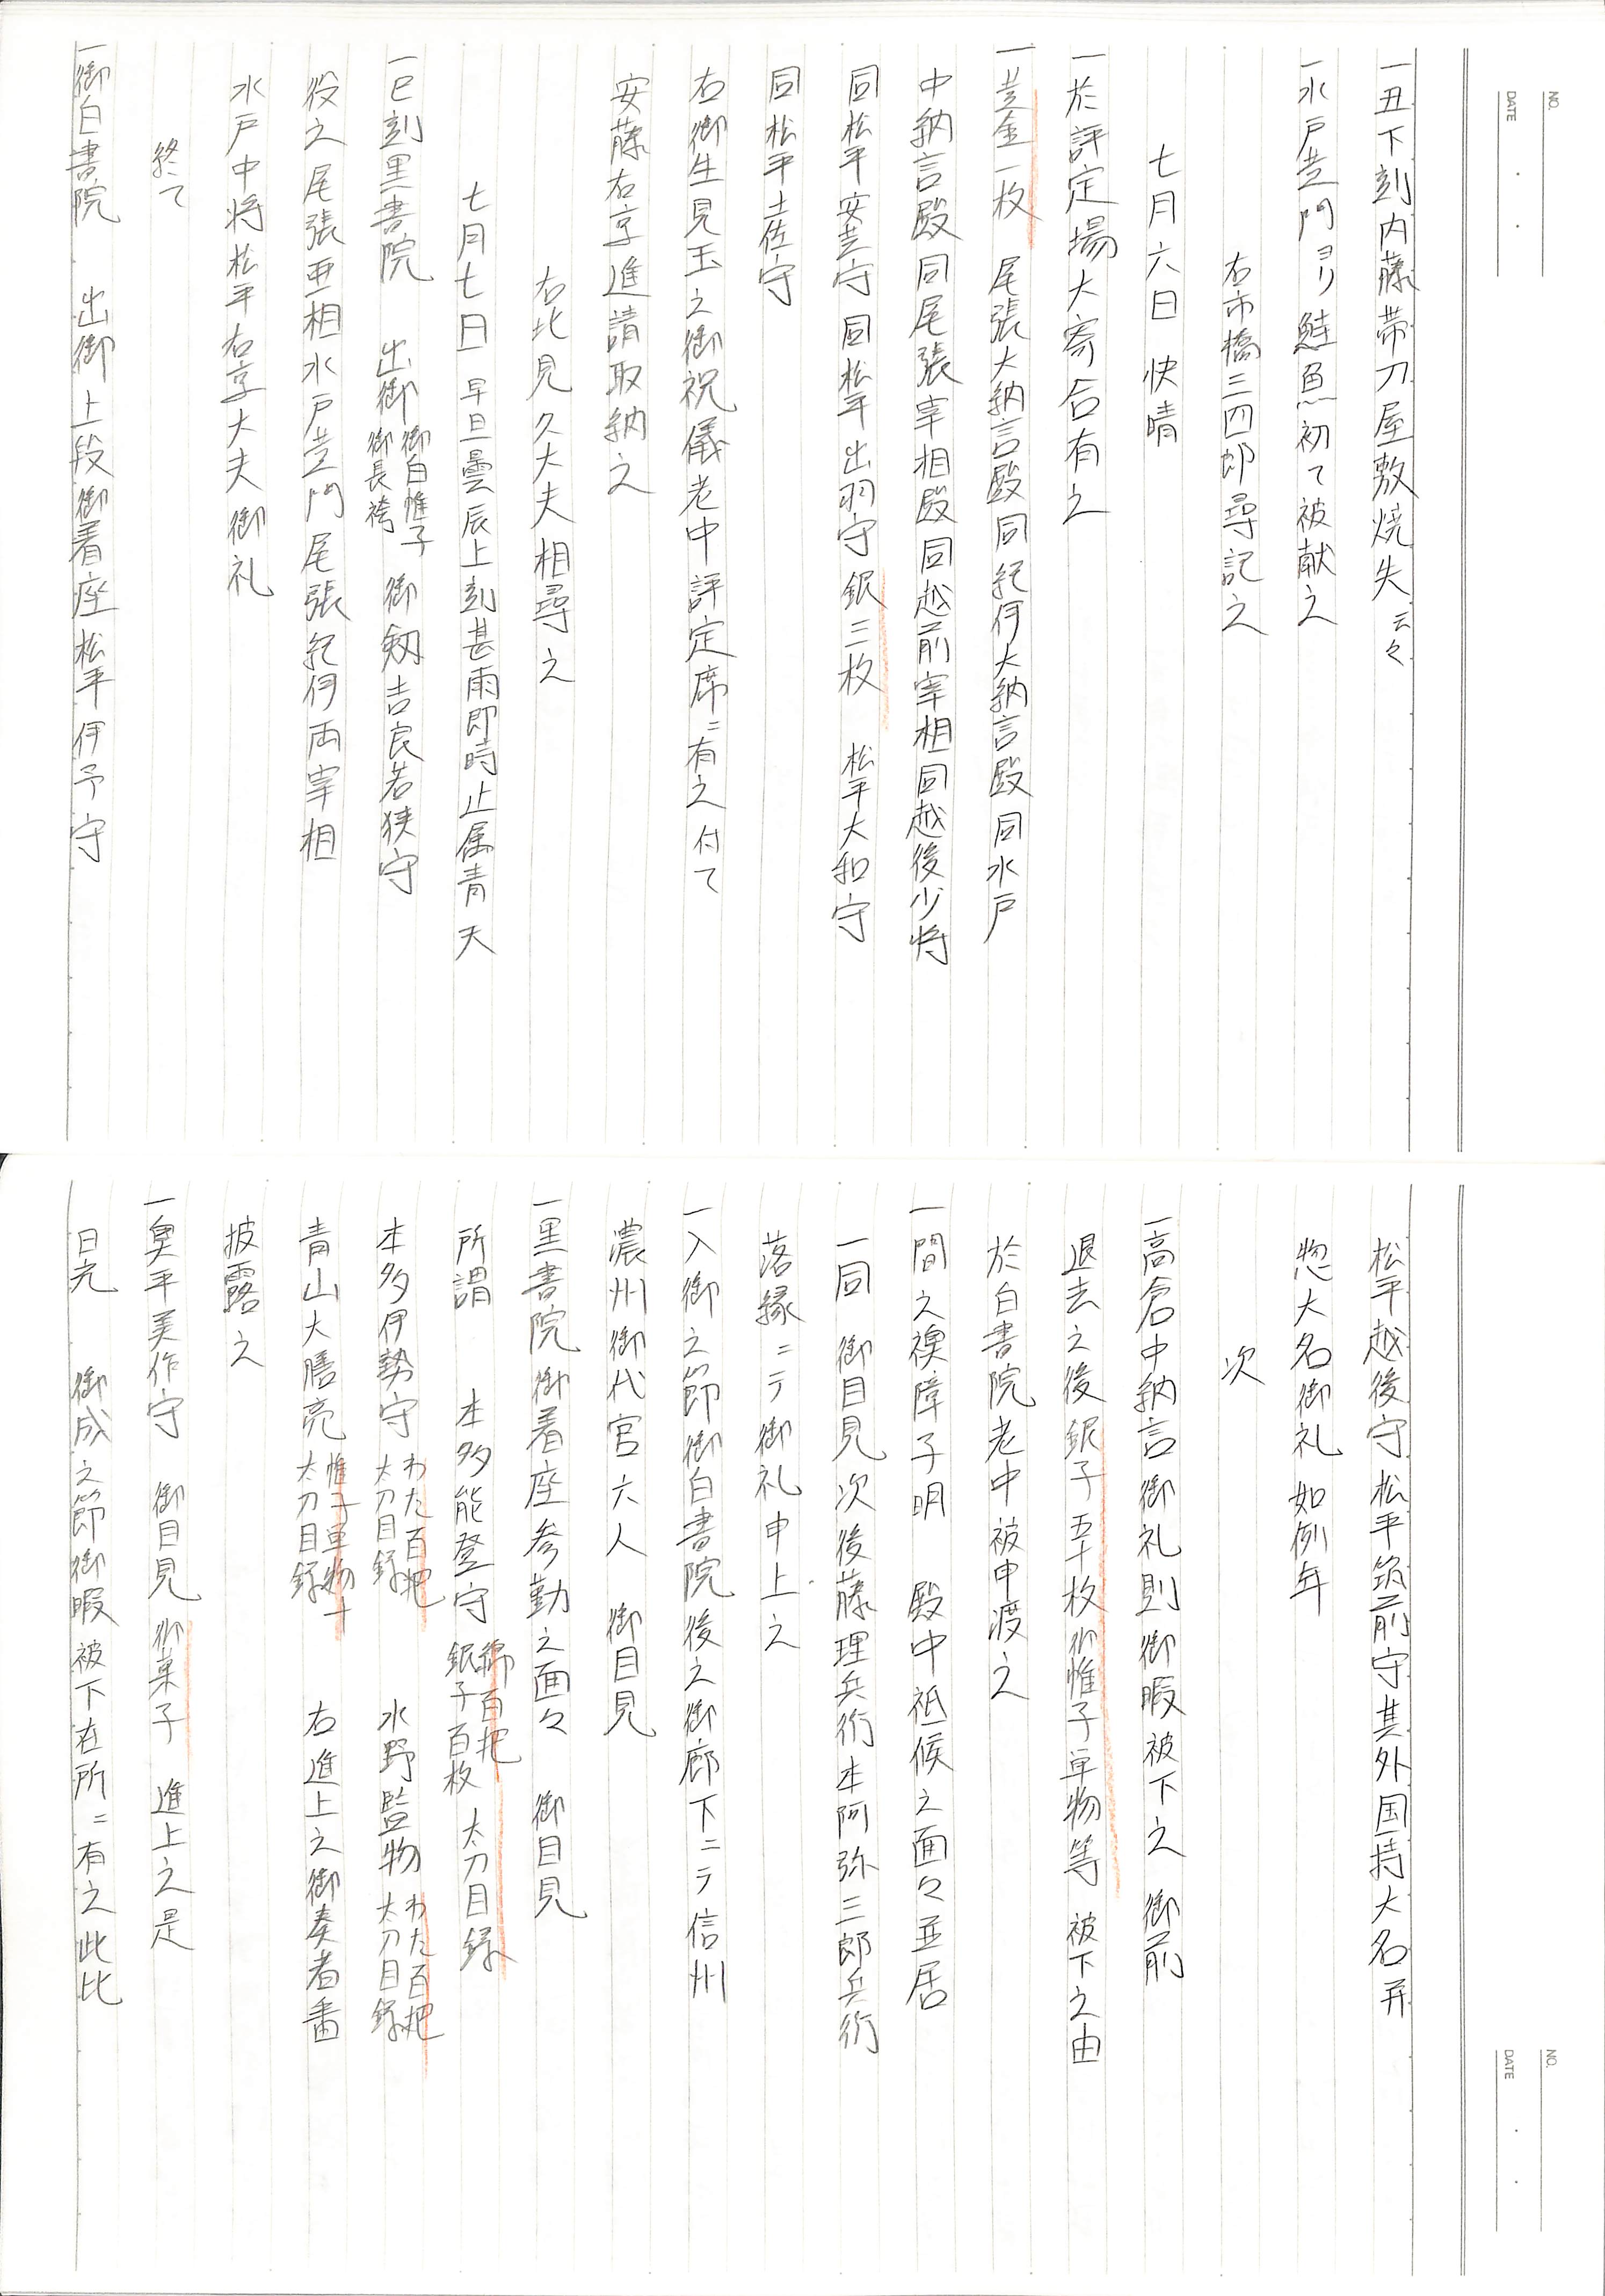 NO.
DATE
一丑下刻内藤帯刀屋敷焼失云々
一水戸黄門ヨリ鮭魚初て被献之
右市橋三四郎尋記之
七月六日 快晴
一於評定場大寄合有之
一黄金一枚 尾張大納言殿同紀伊大納言殿同水戸
中納言殿同尾張宰相殿同越前宰相同越後少将
同松平安芸守同松平出羽守 銀三枚 松平大和守
同松平土佐守
右御生見玉之御祝儀老中評定席ニ有之付て
安藤右京進請取納之
右北見久大夫相尋之
七月七日 早旦曇辰上刻甚雨即時止属青天
一巳刻黒書院 出御 御白帷子 御長袴 御剱吉良若狭守
役之尾張亜相水戸黄門尾張紀伊両宰相
水戸中将松平右京大夫御礼
終て
一御白書院 出御上段御着座松平伊予守
NO.
DATE
松平越後守松平筑前守其外国持大名并
惣大名御礼如例年
次
一高倉中納言御礼則御暇被下之 御前
退去之後銀子五十枚御帷子単物等 被下之由
於白書院老中被申渡之
一間之襖障子明 殿中祗候之面々並居
一同 御目見次後藤理兵衛本阿弥三郎兵衛
落縁ニテ御礼申上之
一入御之節御白書院後之御廊下ニテ信州
濃州御代官六人 御目見
一黒書院御着座参勤之面々 御目見
所謂 本多能登守 綿百把 銀子百枚 太刀目録
本多伊勢守 わた百把 太刀目録 水野監物 わた百把 太刀目録
青山大膳亮 帷子単物十 太刀目録 右進上之御奏者番
披露之
一奥平美作守 御目見 御菓子 進上之是
日光 御成之節御暇被下在所ニ有之此比